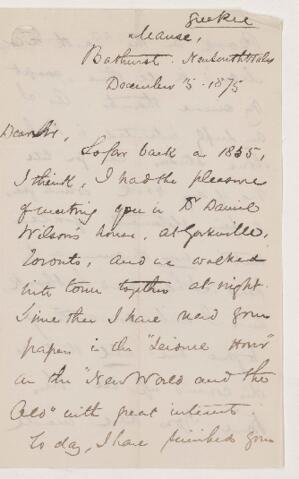 Geekie
Manse,
Bathurst. New South Wales
December 15 - 1875
Dear Sir,
So far back as 1855,
I think, I had the pleasure
of meeting you in Dr Daniel
Wilson's house, at Yorkville,
Toronto, and we walked
into town together at night.
Since then I have read your
papers in the "Leisure Hour"
on the "New World and the
Old" with great interest.
To day, I have finished your